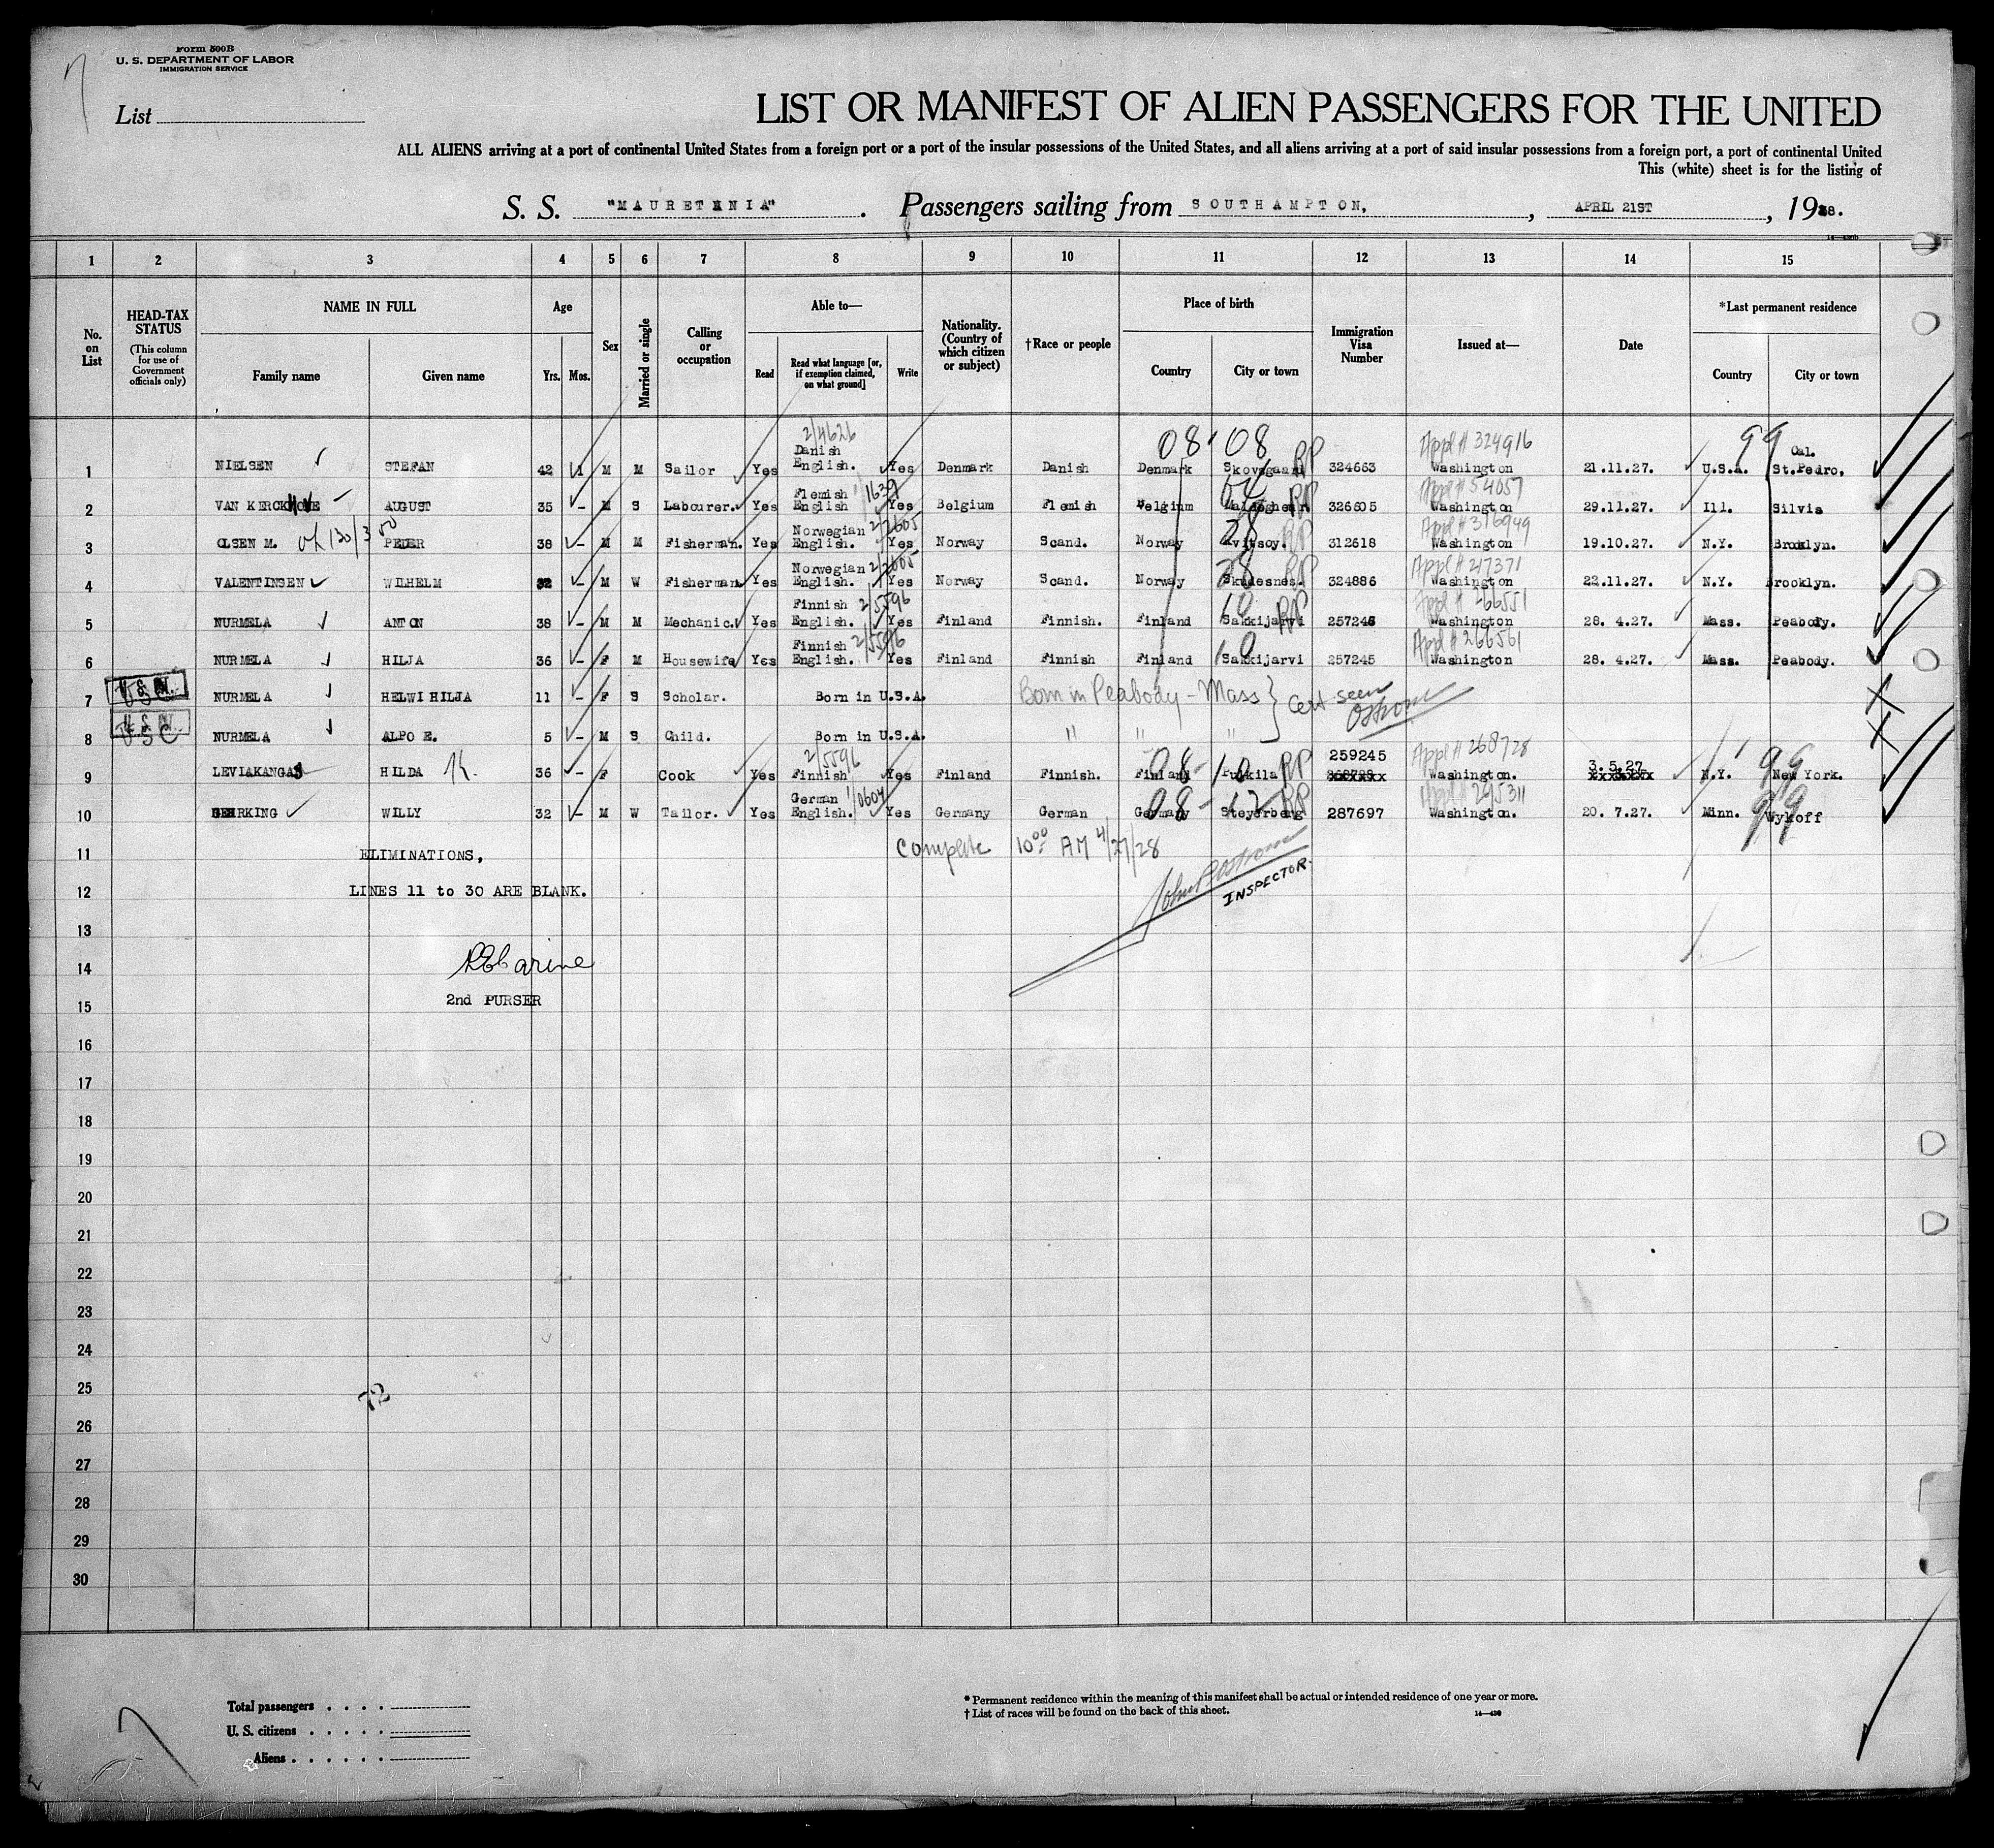 Form 500B
U. S. DEPARTMENT OF LABOR
IMMIGRATION SERVICE
List
LIST OR MANIFEST OF ALIEN PASSENGERS FOR THE UNITED
ALL ALIENS arriving at a port of continental United States from a foreign port or a port of the insular possessions of the United States, and all aliens arriving at a port of said insular possessions from a foreign port, a port of continental United
This (white) sheet is for the listing of
S. S. "MAURETANIA". Passengers sailing from SOUTHAMPTON, , APRIL 21ST , 1928.
1 2 3 4 5 6 7 8 9 10 11 12 13 14 15
No. on List
HEAD-TAX STATUS
(This column for use of Government officials only)
NAME IN FULL
Family name Given name
Age
Yrs. Mos.
Sex
Married or single
Calling or occupation
Able to—
Read Read what language [or, if exemption claimed, on what ground] Write
Nationality. (Country of which citizen or subject)
†Race or people
Place of birth
Country City or town
Immigration Visa Number
Issued at—
Date
*Last permanent residence
Country City or town
2/4626 08 08 Appl # 324916 99
1 NIELSEN STEFAN 42 1 M M Sailor Yes Danish English. Yes Denmark Danish Denmark 324663 Washington 21.11.27. U.S.A. Cal. St.Pedro.
1/1639 Appl # 54057
2 VAN KERCKHOVE AUGUST 35 - M S Labourer. Yes Flemish English Yes Belgium Flemish Belgium 326605 Washington 29.11.27. Ill. Silvis
2/2605 28 RP Appl # 316949
3 OLSEN M. PEDER 38 - M M Fisherman. Yes Norwegian English. Yes Norway Scand. Norway Kvitsoy. 312618 Washington 19.10.27. N.Y. Brooklyn.
2/2605 28 RP Appl # 217371
4 VALENTINSEN WILHELM 32 - M W Fisherman Yes Norwegian English. Yes Norway Scand. Norway Skudesnes. 324886 Washington 22.11.27. N.Y. Brooklyn.
2/5596 10 RP Appl # 266551
5 NURMELA ANTON 38 - M M Mechanic. Yes Finnish English. Yes Finland Finnish. Finland Sakkijarvi 257246 Washington 28. 4.27. Mass. Peabody.
2/5596 10 Appl # 266561
6 NURMELA HILJA 36 - F M Housewife Yes Finnish English. Yes Finland Finnish Finland Sakkijarvi 257245 Washington 28. 4.27. Mass. Peabody.
USC
7 NURMELA HELWI HILJA 11 - F S Scholar. Born in U.S.A. Born in Peabody - Mass } Cert seen Ostrom
USC
8 NURMELA ALPO E. 5 - M S Child. Born in U.S.A. " " "
2/5596 08-10 RP Appl # 268728 99
9 LEVIAKANGAS HILDA K. 36 - F Cook Yes Finnish Yes Finland Finnish. Finland Pulkila 259245 Washington. 3.5.27 N.Y. New York.
1/0604 08-12 RP Appl # 295311 99
10 GEHRKING WILLY 32 - M W Tailor. Yes German English. Yes Germany German Germany Steyerberg 287697 Washington. 20. 7.27. Minn. Wykoff
Complete 10:00 AM 4/27/28
11 ELIMINATIONS,
12 LINES 11 to 30 ARE BLANK.
INSPECTOR.
13
14
2nd PURSER
15
16
17
18
19
20
21
22
23
24
25
72
26
27
28
29
30
Total passengers . . . .
U. S. citizens . . . . .
Aliens . . . . . .
* Permanent residence within the meaning of this manifest shall be actual or intended residence of one year or more.
† List of races will be found on the back of this sheet.